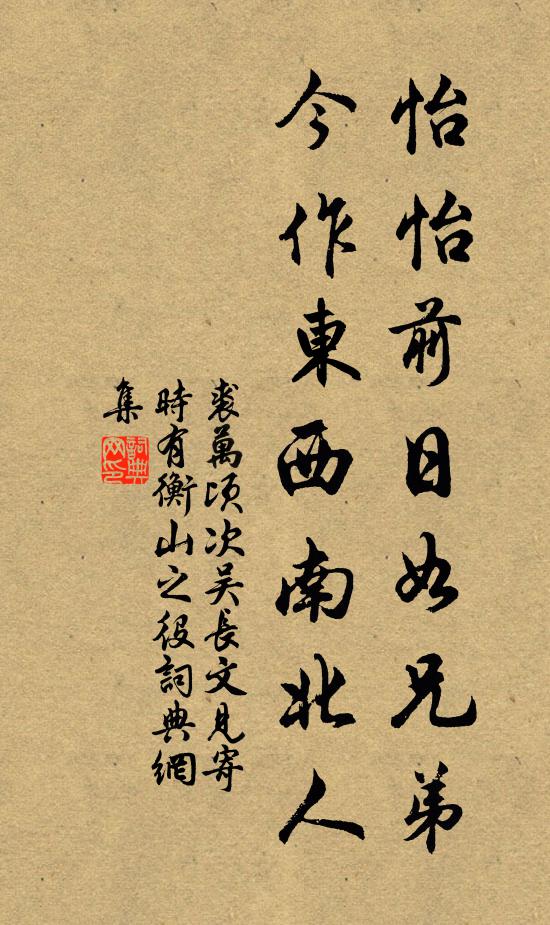 怡怡前日如兄弟
今作東西南北人
裘萬頃次吴長文見寄
時有衡山之役詞典網
集
詞典網印